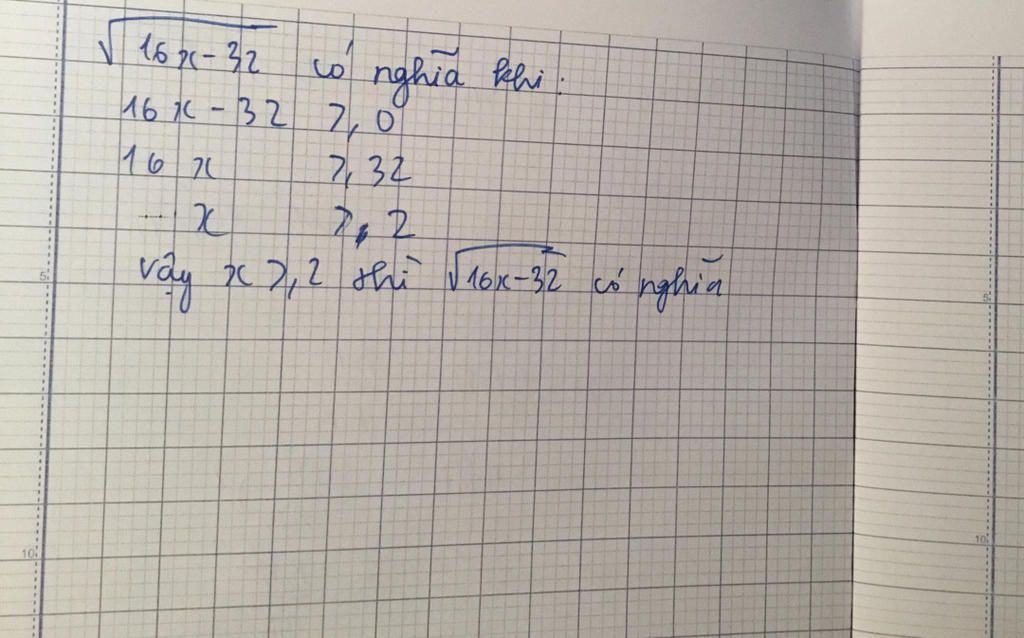 √16x-32 có nghĩa khi:
16x - 32 ⩾ 0
16 x ⩾ 32
x ⩾ 2
vậy x ⩾ 2 thì √16x-32 có nghĩa
5
10
5
10